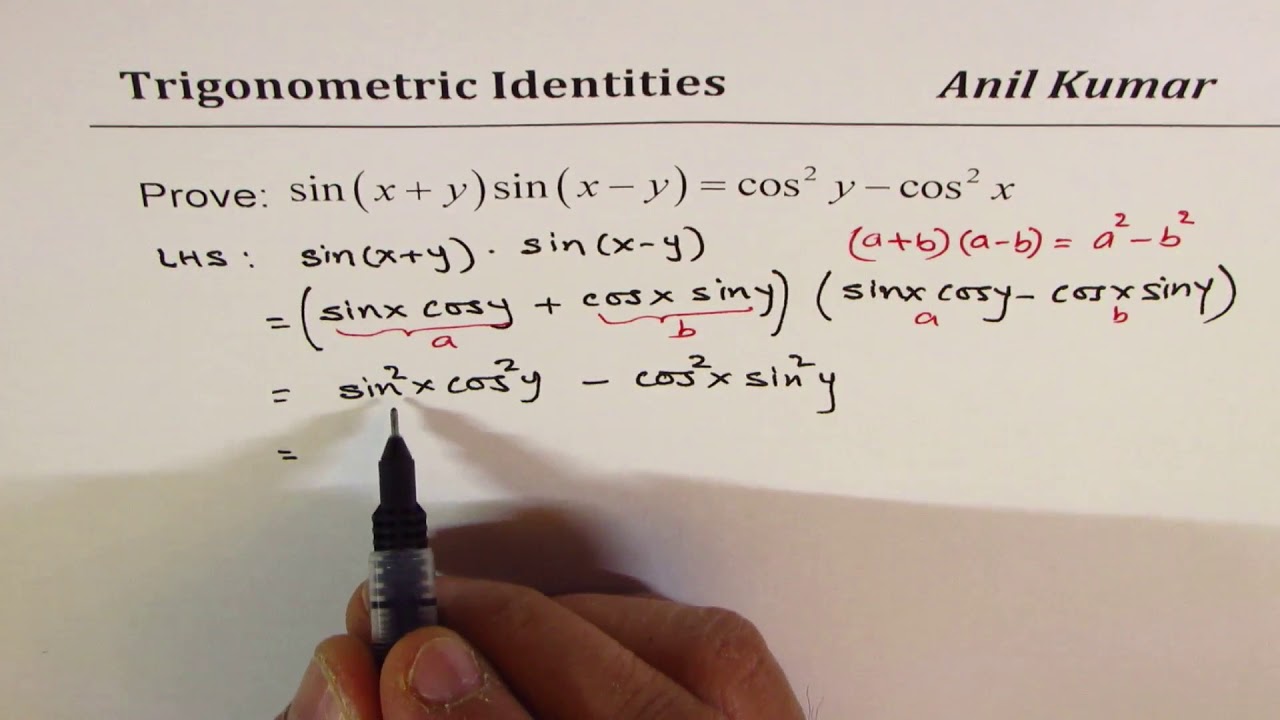 Trigonometric Identities Anil Kumar
Prove: sin(x + y)sin(x − y) = cos² y − cos² x
LHS : sin(x+y) · sin(x-y) (a+b)(a-b) = a² - b²
= (sinx cosy + cosx siny) (sinx cosy - cosx siny)
a b a b
= sin²x cos²y - cos²x sin²y
=